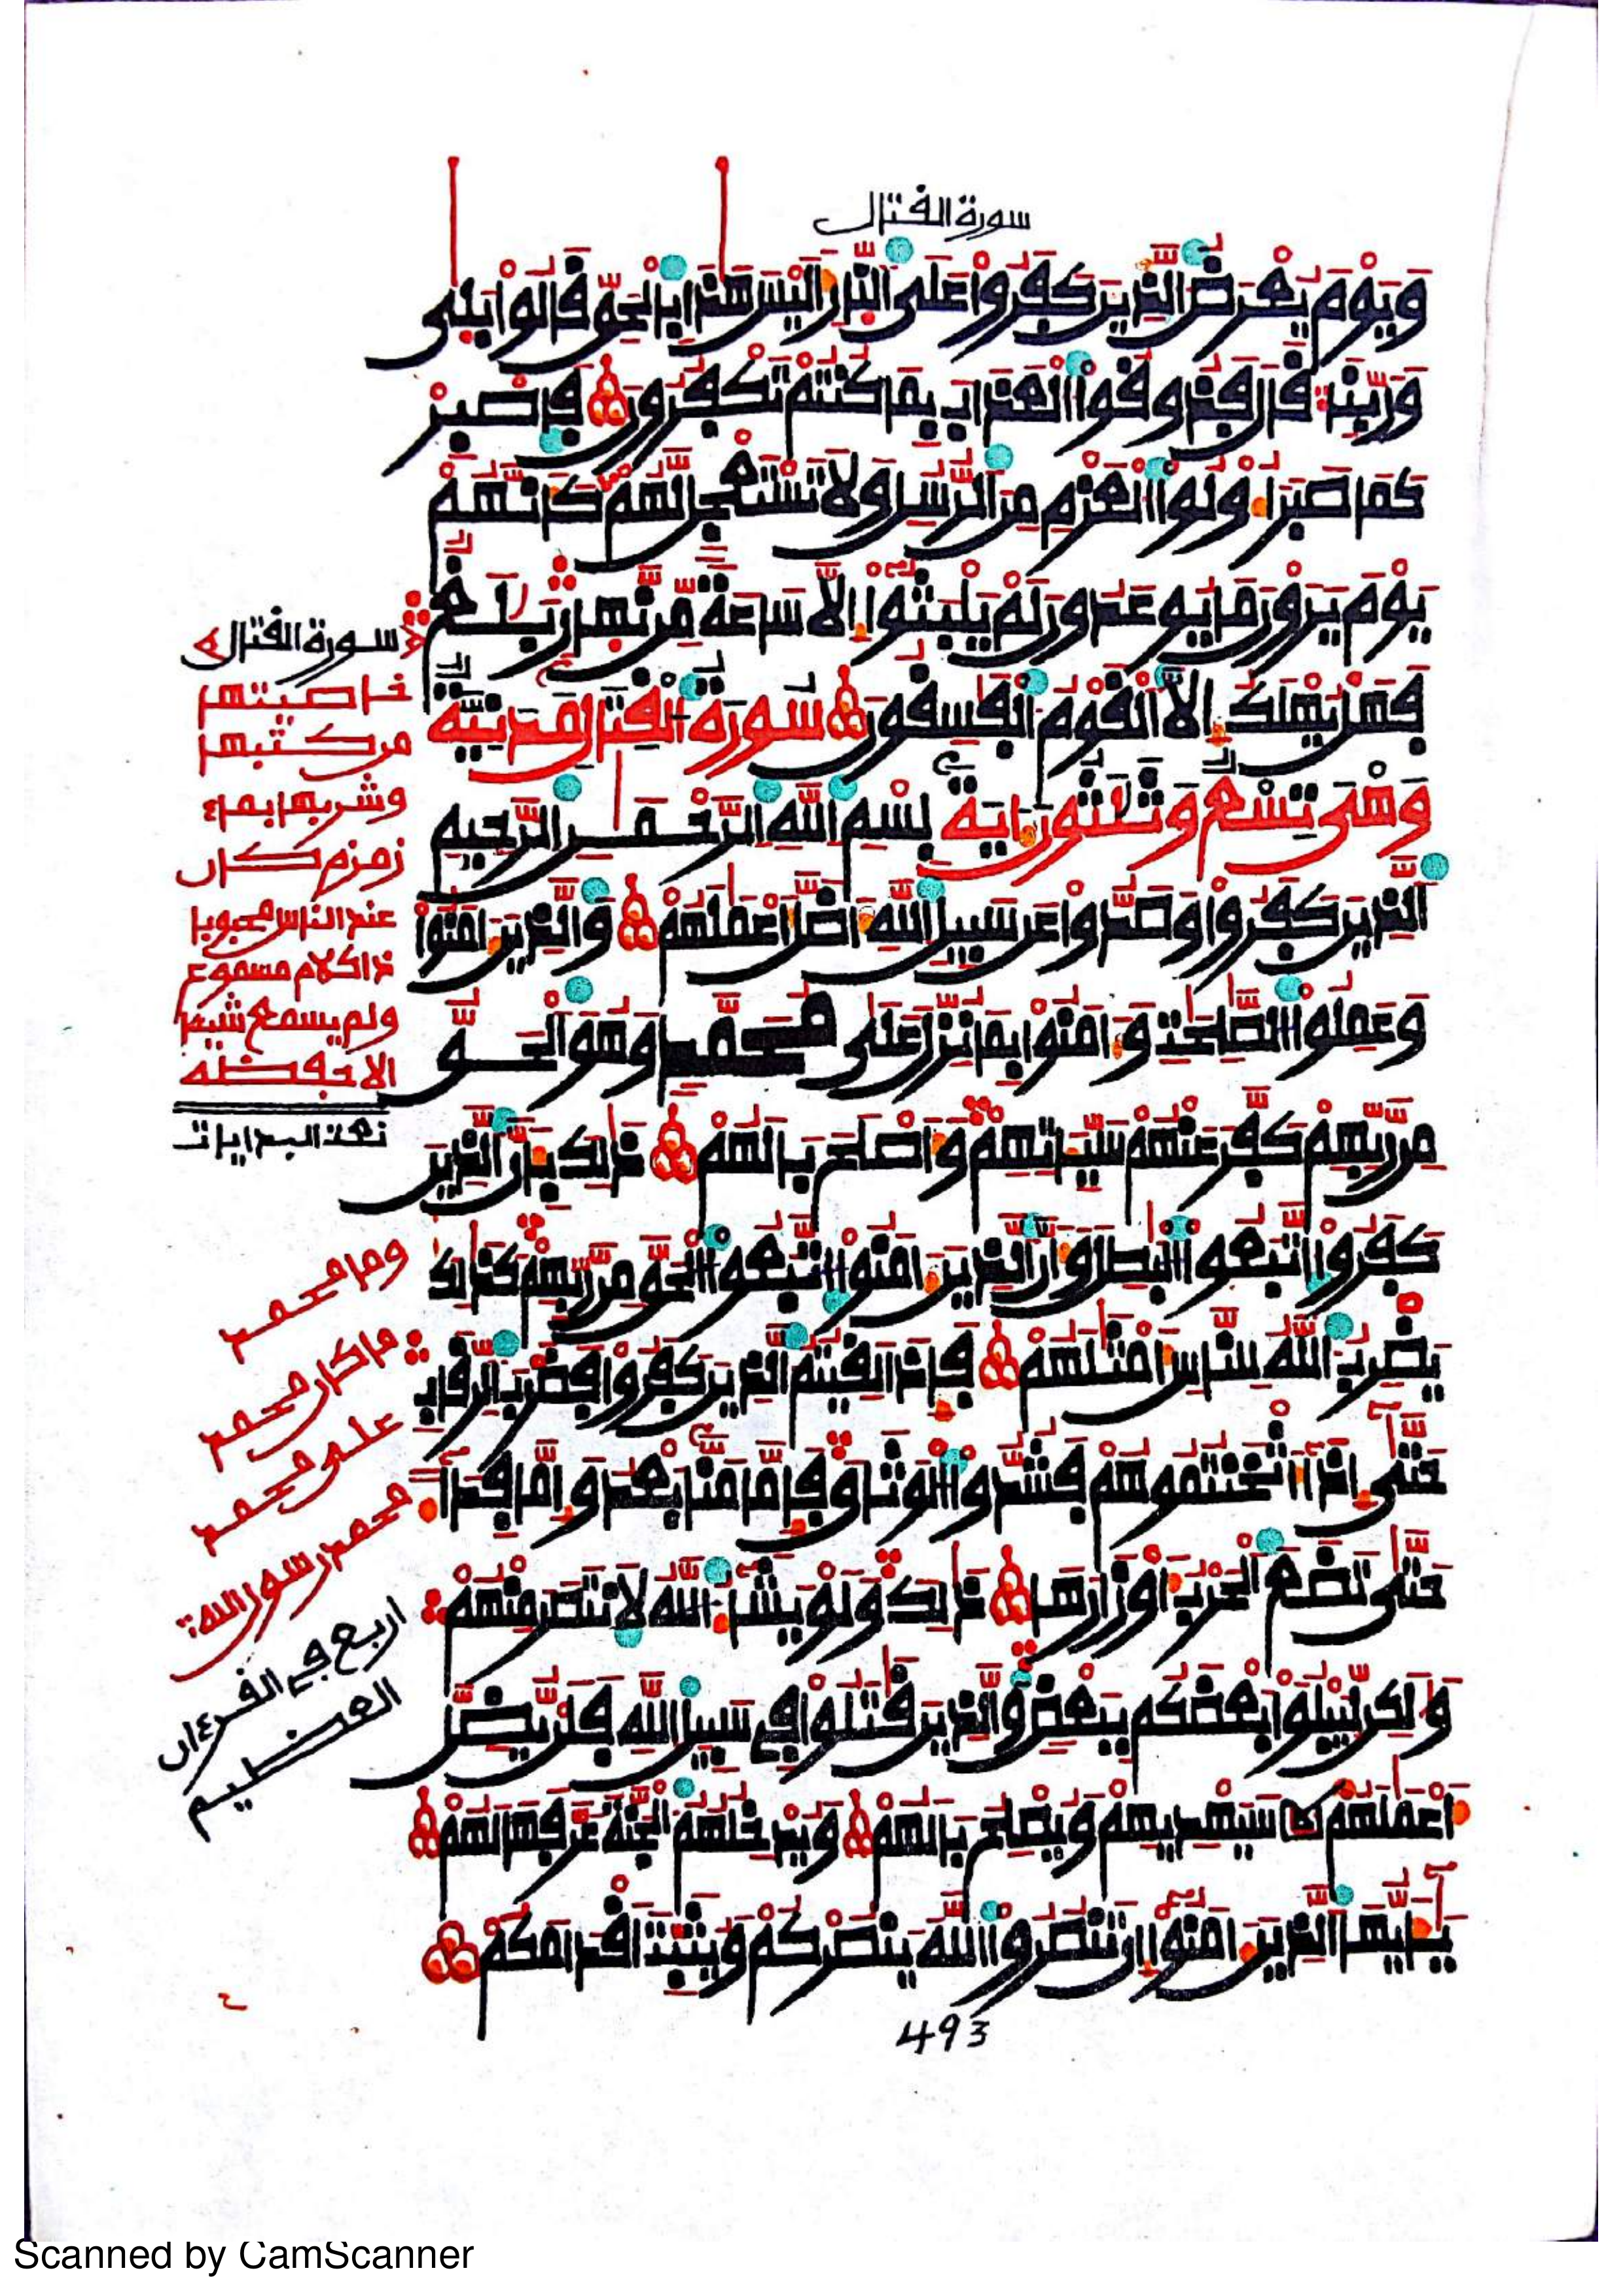 سورة القتال
ويوم يعرض الذين كفروا على النار اليس هذا بالحق قالوا بلى
وربنا قال فذوقوا العذاب بما كنتم تكفرون فاصبر
كما صبر اولوا العزم من الرسل ولا تستعجل لهم كانهم
يوم يرون ما يوعدون لم يلبثوا الا ساعة من نهار بلغ
فهل يهلك الا القوم الفسقون سورة القتال مدنية
وهى تسع وثلثون اية بسم الله الرحمن الرحيم
الذين كفروا وصدوا عن سبيل الله اضل اعملهم والذين امنوا
وعملوا الصلحت وامنوا بما نزل على محمد وهو الحق
من ربهم كفر عنهم سياتهم واصلح بالهم ذلك بان الذين
كفروا اتبعوا البطل وان الذين امنوا اتبعوا الحق من ربهم كذلك
يضرب الله للناس امثلهم فاذا لقيتم الذين كفروا فضرب الرقاب
حتى اذا اثخنتموهم فشدوا الوثاق فاما منا بعد واما فدا
حتى تضع الحرب اوزارها ذلك ولو يشا الله لانتصر منهم
ولكن ليبلوا بعضكم ببعض والذين قتلوا فى سبيل الله فلن يضل
اعملهم سيهديهم ويصلح بالهم ويدخلهم الجنة عرفها لهم
يايها الذين امنوا ان تنصروا الله ينصركم ويثبت اقدامكم
493
سورة القتال
خاصيتها
من كتبها
وشربها بماء
زمزم كان
عند الناس محبوبا
ذا كلام مسموع
ولم يسمع شيئا
الا حفظه
تمت البدايات
وما محمد
ما كان محمد
على محمد
محمد رسول الله
اربع فى القرءان
العظيم
Scanned by CamScanner